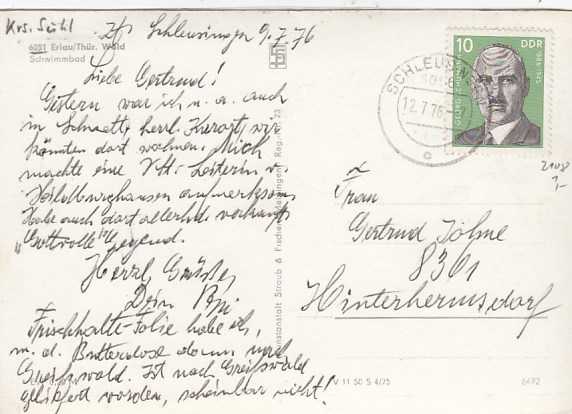 Krs. Suhl
Zt. Schleusingen 9.7.76
6051 Erlau/Thür. Wald
Schwimmbad
Liebe Gertrud!
Gestern war ich u. a. auch
in Schnett, herrl. Kurort, wir
könnten dort wohnen. Mich
machte eine Leiterin v.
Hildburghausen aufmerksam
Habe auch dort allerhand verkauft
Gottvolle Gegend.
Herzl. Grüße,
Dein
Frischhalte-Folie habe ich,
m. d. Butterdose dann nach
Greifswald. Ist nach Greifswald
geliefert worden, scheinbar nicht!
Kunstanstalt Straub & Fischer Meiningen Reg.-Nr. 23
V 11 50 S 4/75
6472
10 DDR
GEORG SCHUMANN
1886-1945
12.7.76
2108
1,-
Frau
Gertrud Johne
8361
Hinterhermsdorf